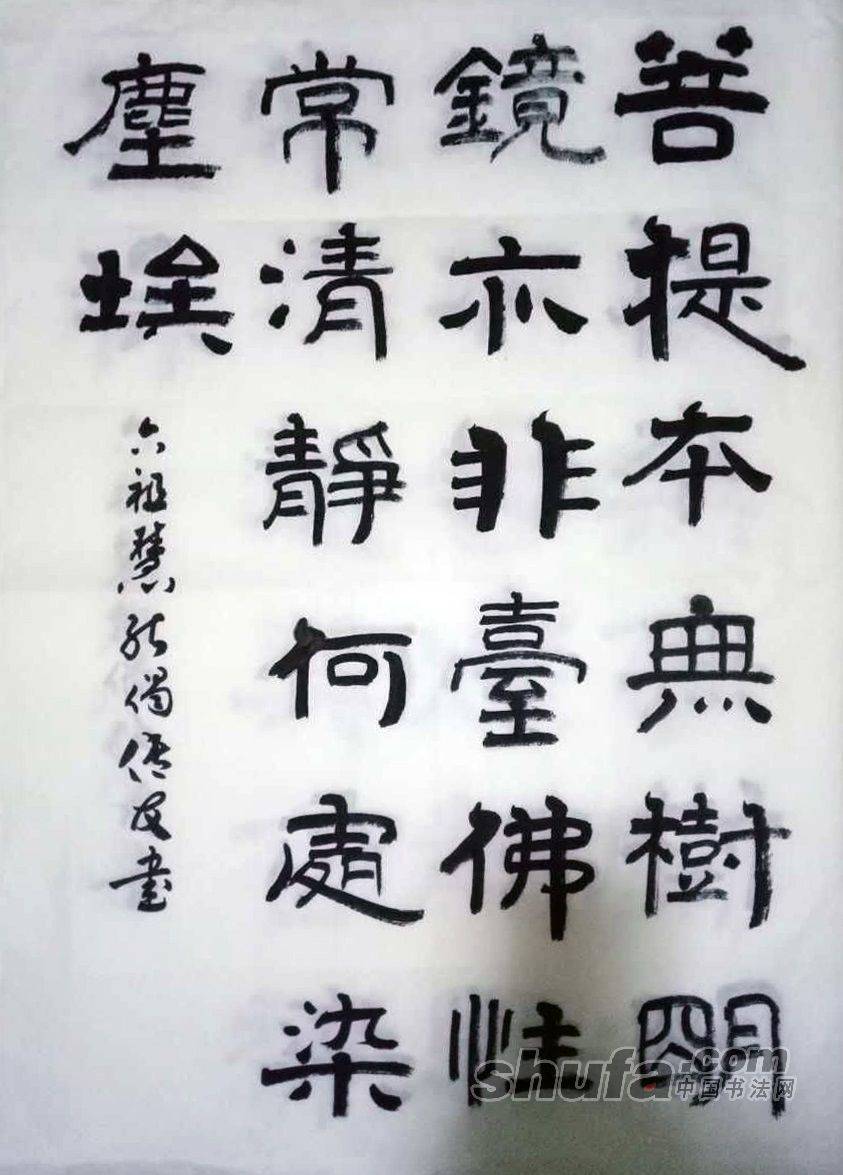 菩提本無樹明
鏡亦非臺佛性
常清靜何處染
塵埃
六祖慧能偈 书
shufa.com
中国书法网